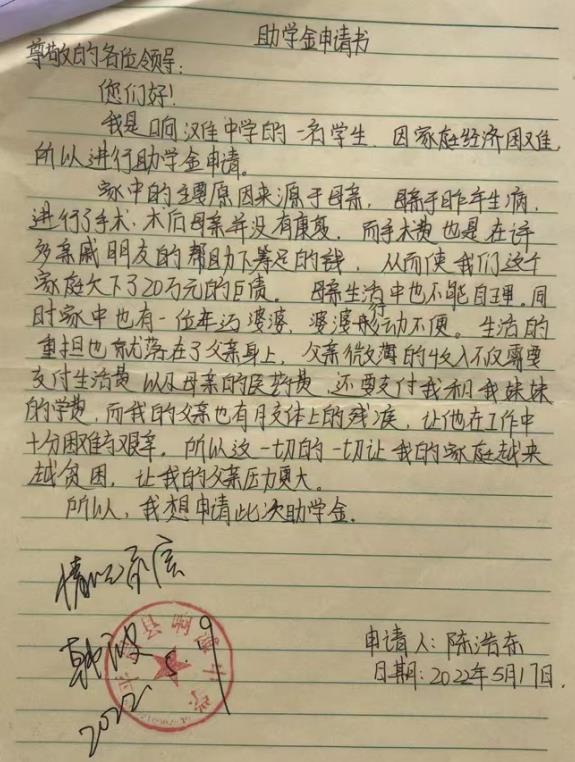 助学金申请书
尊敬的各位领导:
您们好!
我是响滩中学的一名学生.因家庭经济困难,
所以进行助学金申请。
家中的主要原因来源于母亲,母亲于昨年生病,
进行了手术.术后母亲并没有康复.而手术费也是在许
多亲戚朋友的帮助下筹足的钱,从而使我们这个
家庭欠下了20万元的巨债。母亲生活中也不能自理.同
时家中也有一位年迈婆婆,婆婆行动不便。生活的
重担也就落在了父亲身上,父亲微薄的收入不仅需要
支付生活费以及母亲的医药费.还要支付我和我妹妹
的学费,而我的父亲也有肢体上的残疾,让他在工作中
十分困难与艰辛。所以这一切的一切让我的家庭越来
越贫困,让我的父亲压力更大。
所以,我想申请此次助学金.
情况属实
2022.5.19
申请人:陈浩东
日期:2022年5月17日.